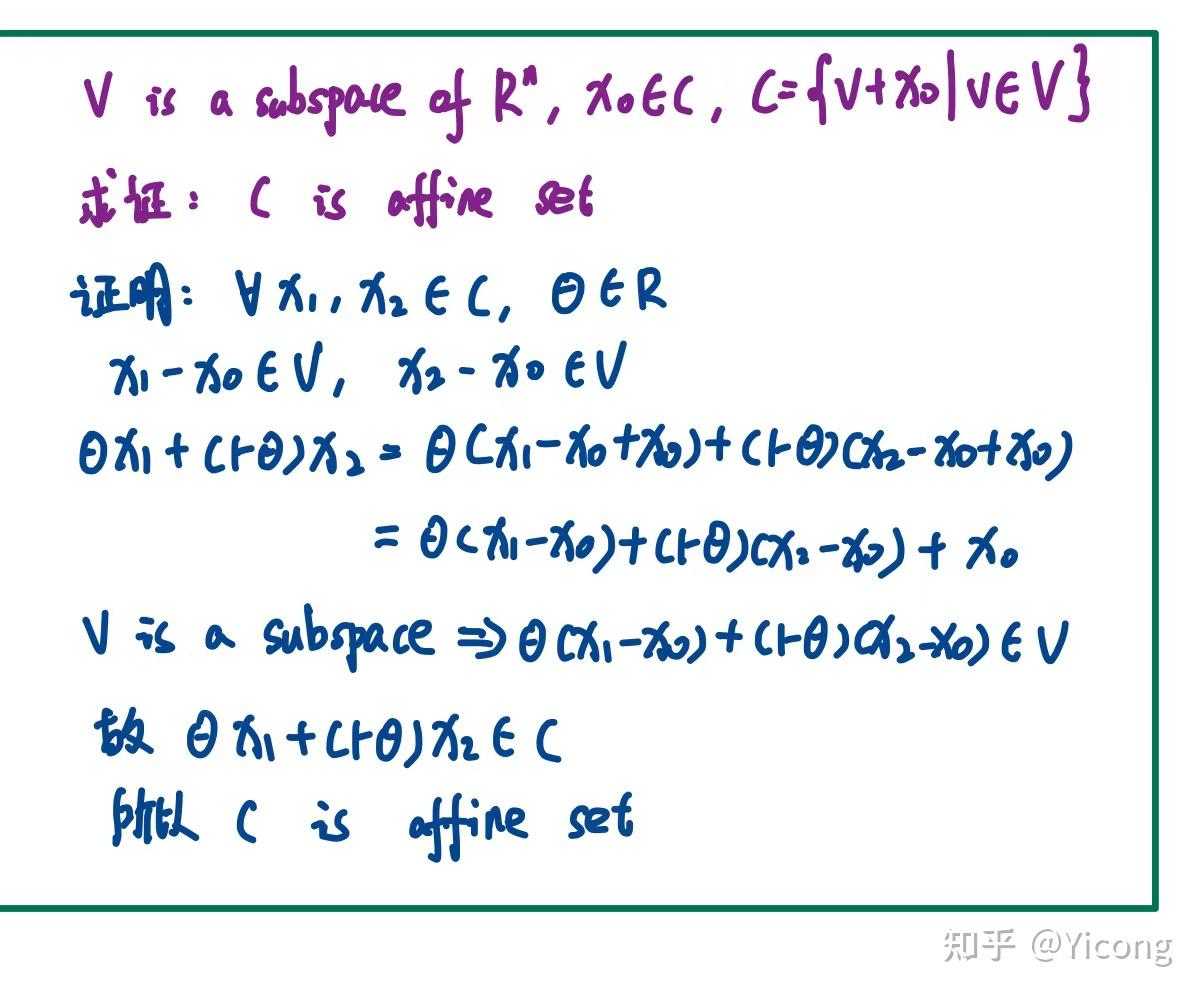 V is a subspace of Rⁿ, x₀∈C, C={v+x₀|v∈V}
求证: C is affine set
证明: ∀ x₁, x₂ ∈ C, θ ∈ R
x₁-x₀∈V, x₂-x₀∈V
θx₁+(1-θ)x₂ = θ(x₁-x₀+x₀)+(1-θ)(x₂-x₀+x₀)
= θ(x₁-x₀)+(1-θ)(x₂-x₀)+x₀
V is a subspace ⇒ θ(x₁-x₀)+(1-θ)(x₂-x₀)∈V
故 θx₁+(1-θ)x₂∈C
所以 C is affine set
知乎 @Yicong